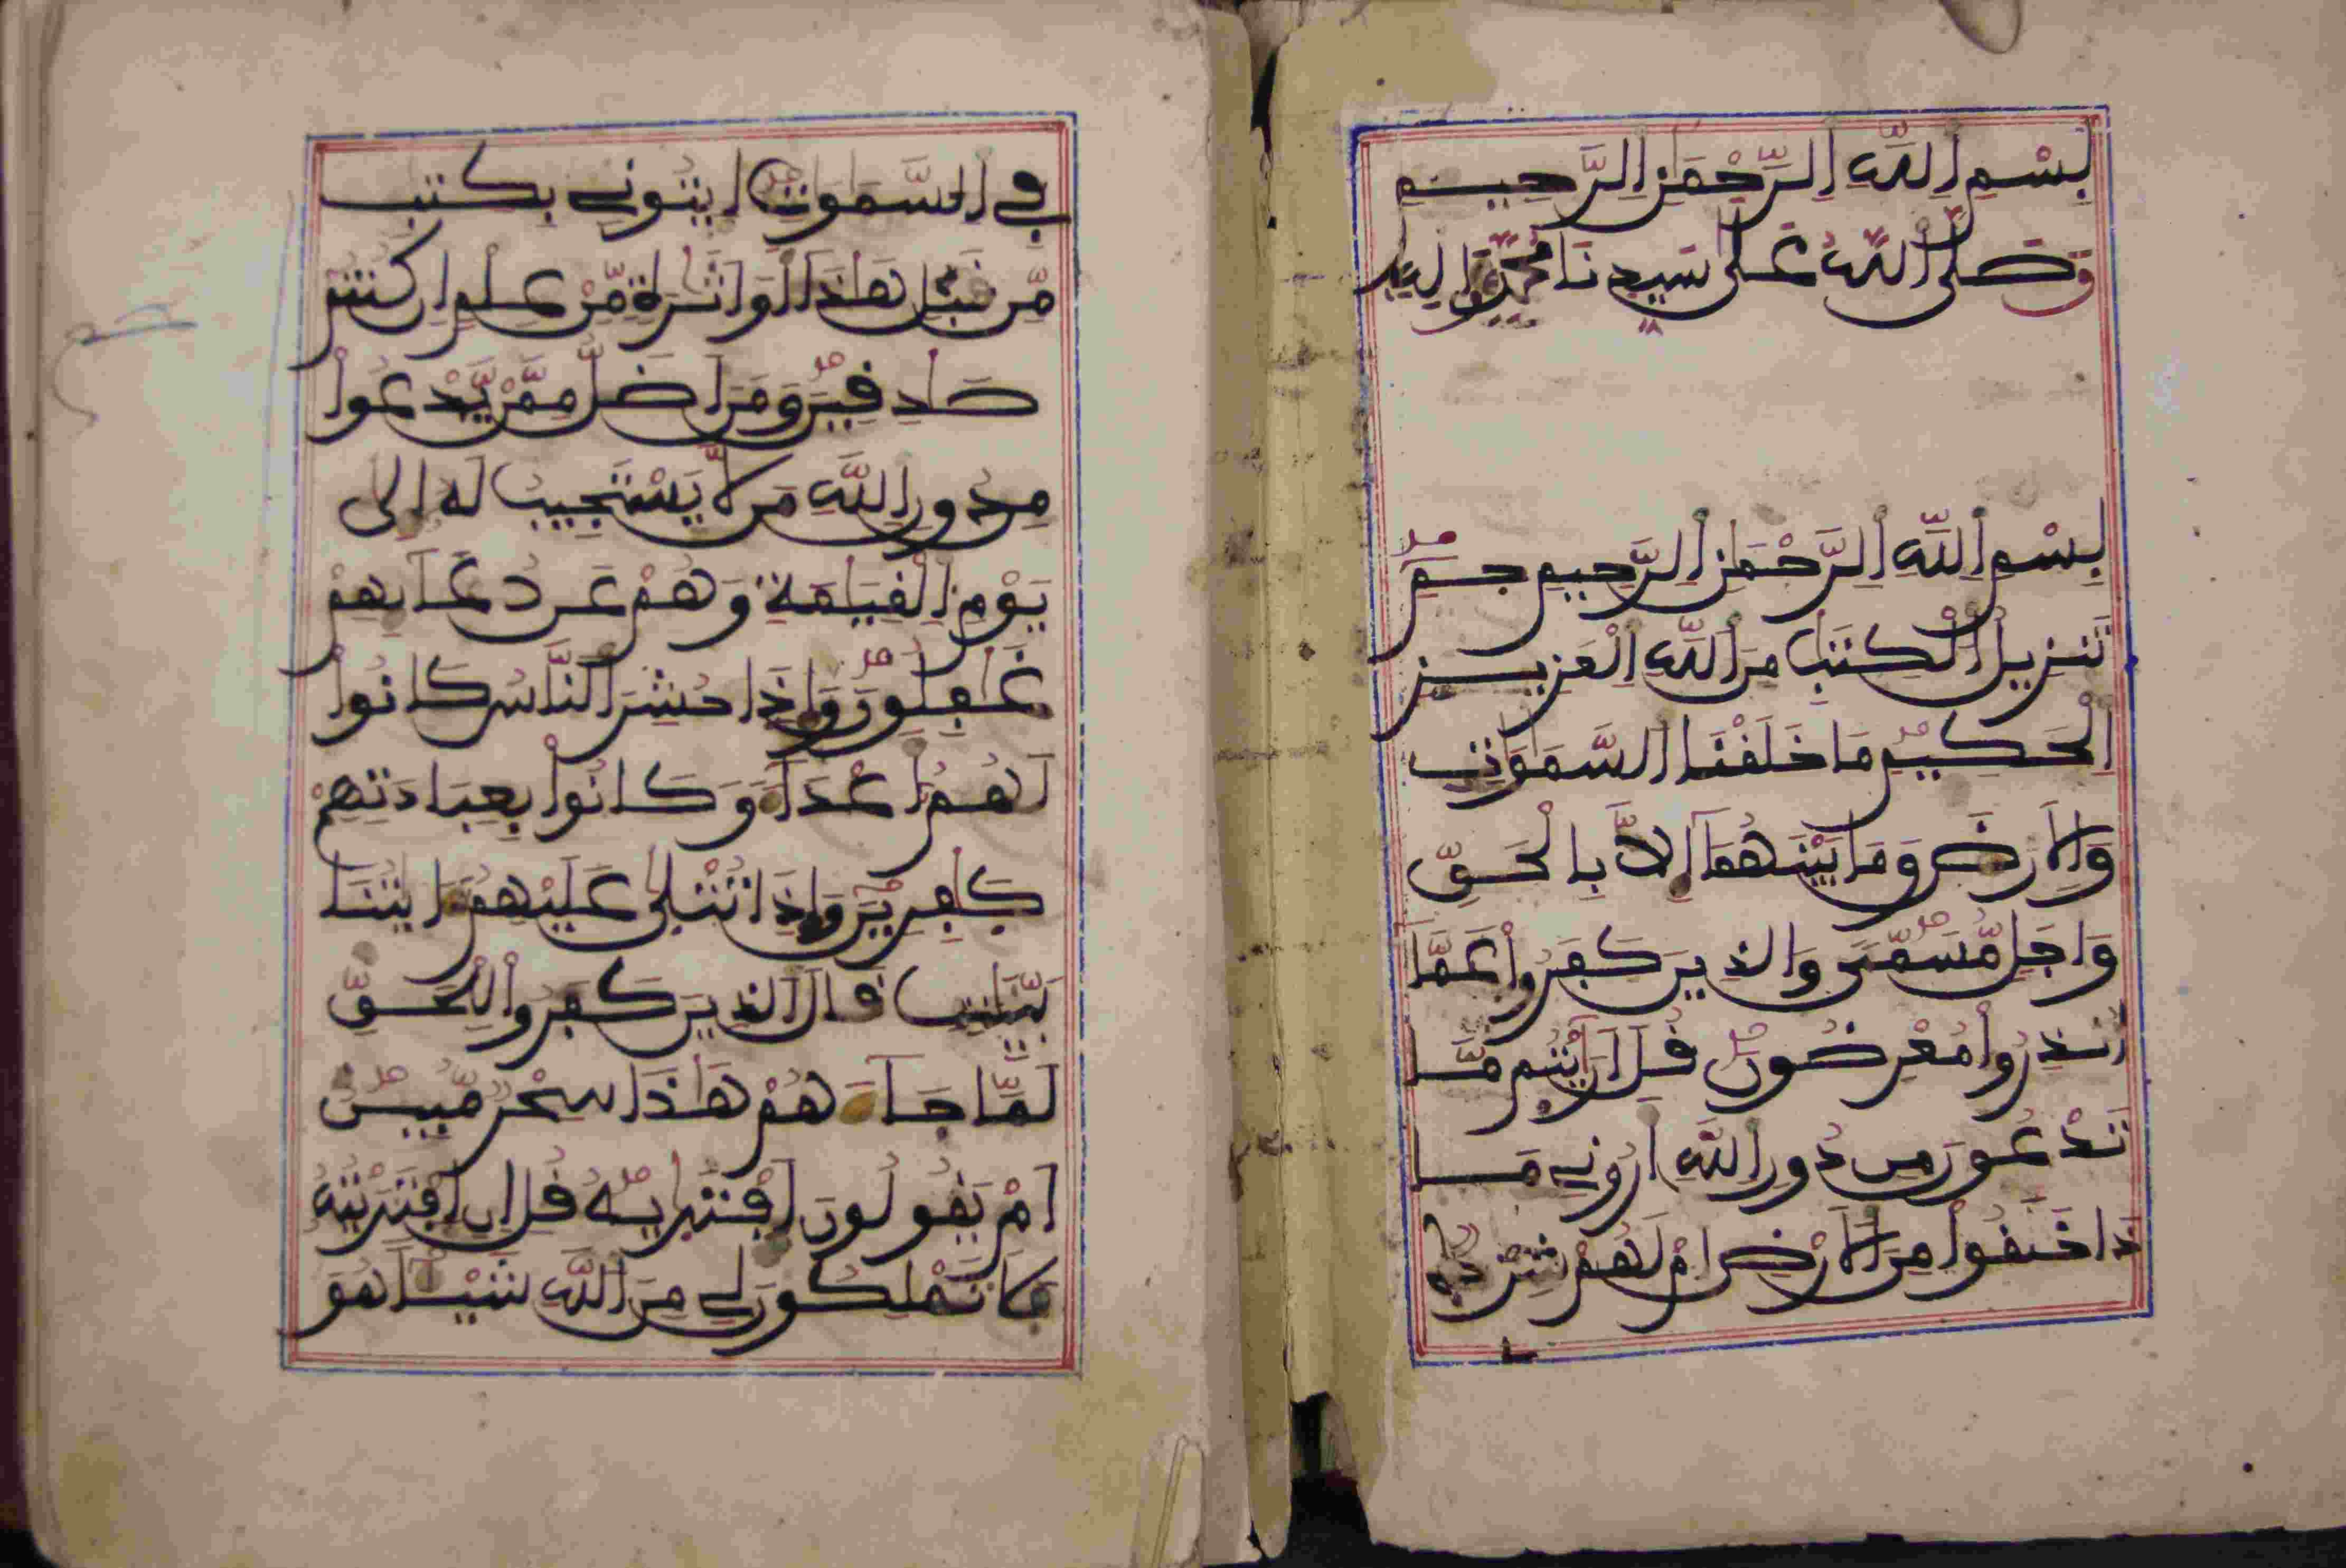 بِسْمِ اِللَّهِ اِلرَّحْمَٰنِ اِلرَّحِيمِ
وَصَلَّى اَللَّهُ عَلَى سَيِّدِنَا مُحَمَّدٍ
بِسْمِ اِللَّهِ اِلرَّحْمَٰنِ اِلرَّحِيمِ حمٓ
تَنزِيلُ اُلْكِتَٰبِ مِنَ اَللَّهِ اِلْعَزِيزِ
اِلْحَكِيمِ مَا خَلَقْنَا اَلسَّمَٰوَٰتِ
وَالَارْضَ وَمَا بَيْنَهُمَآ إِلَّا بِالْحَقِّ
وَأَجَلٍ مُّسَمًّى وَالذِينَ كَفَرُواْ عَمَّآ
أُنذِرُواْ مُعْرِضُونَ قُلَ اَرَٰيْتُم مَّا
تَدْعُونَ مِن دُونِ اِللَّهِ أَرُونِي مَا
ذَا خَلَقُواْ مِنَ اَلَارْضِ أَمْ لَهُمْ شِرْكٌ
فِي اِلسَّمَٰوَٰتِ اِيتُونِي بِكِتَٰبٍ
مِّن قَبْلِ هَٰذَآ أَوَ اَثَٰرَةٍ مِّنْ عِلْمٍ اِن كُنتُمْ
صَٰدِقِينَ وَمَنَ اَضَلُّ مِمَّنْ يَّدْعُواْ
مِن دُونِ اِللَّهِ مَن لَّا يَسْتَجِيبُ لَهُ إِلَىٰ
يَوْمِ اِلْقِيَٰمَةِ وَهُمْ عَن دُعَآئِهِمْ
غَٰفِلُونَ وَإِذَا حُشِرَ اَلنَّاسُ كَانُواْ
لَهُمُ أَعْدَآءً وَكَانُواْ بِعِبَادَتِهِمْ
كَٰفِرِينَ وَإِذَا تُتْلَىٰ عَلَيْهِمُ ءَايَٰتُنَا
بَيِّنَٰتٍ قَالَ اَلذِينَ كَفَرُواْ لِلْحَقِّ
لَمَّا جَآءَهُمْ هَٰذَا سِحْرٌ مُّبِينٌ
أَمْ يَقُولُونَ اَفْتَر۪يٰهُ قُلِ اِنِ اِفْتَرَيْتُهُ
فَلَا تَمْلِكُونَ لِي مِنَ اَللَّهِ شَيْـًٔا هُوَ